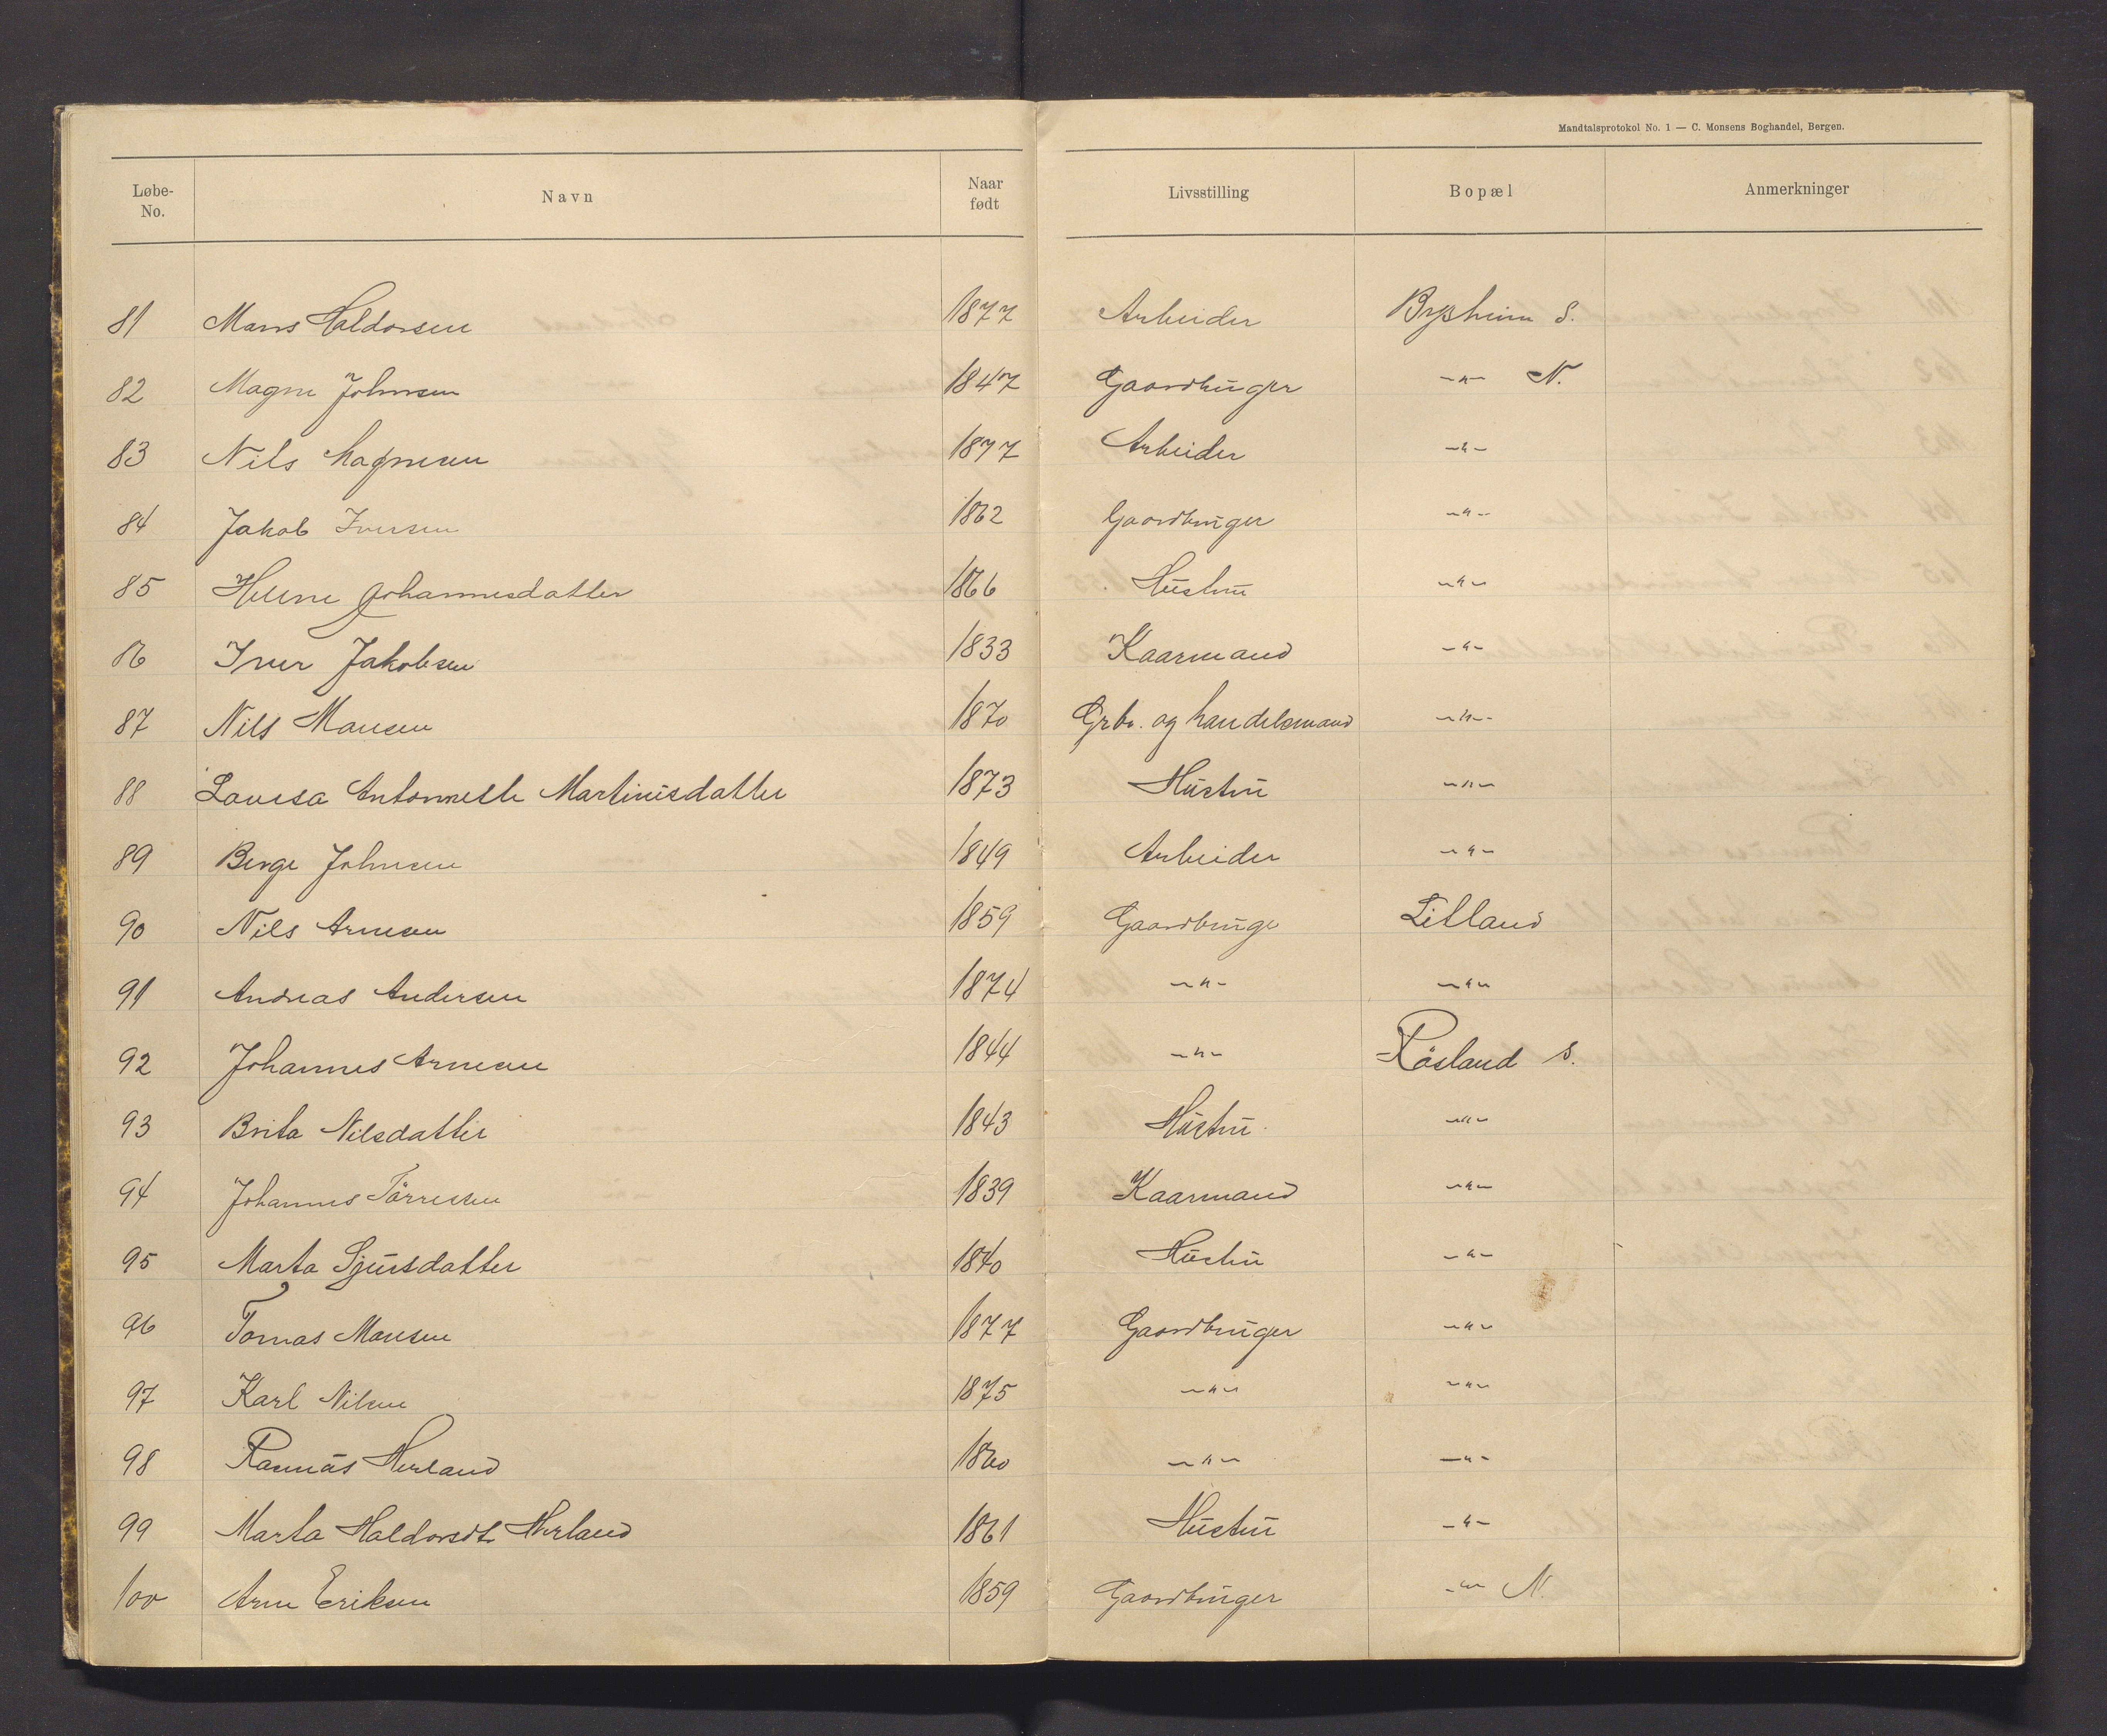 Mandtalsprotokol No. 1 — C. Monsens Boghandel, Bergen.
Løbe-No. Navn Naar født Livsstilling Bopæl Anmerkninger
81 Mans Haldorsen 1877 Arbeider Bysheim S.
82 Magne Johnsen 1847 Gaardbruger -"- N.
83 Nils Magnesen 1877 Arbeider -"-
84 Jakob Iversen 1862 Gaardbruger -"-
85 Helene Johannesdatter 1866 Hustru -"-
86 Iver Jakobsen 1833 Kaarmand -"-
87 Nils Monsen 1870 Grbr. og handelsmand -"-
88 Lovisa Antonnette Martinusdatter 1873 Hustru -"-
89 Berge Johnsen 1849 Arbeider -"-
90 Nils Arnesen 1859 Gaardbruge Litland
91 Andreas Andersen 1874 -"- -"-
92 Johannes Arnesen 1844 -"- Røsland S.
93 Brita Nilsdatter 1843 Hustru -"-
94 Johannes Tørresen 1839 Kaarmand -"-
95 Marta Sjursdatter 1840 Hustru -"-
96 Tomas Monsen 1877 Gaardbruger -"-
97 Karl Nilsen 1875 -"- -"-
98 Rasmus Herland 1860 -"- -"-
99 Marta Haldorsdtr Herland 1861 Hustru -"-
100 Arne Eriksen 1859 Gaardbruger -"- N.